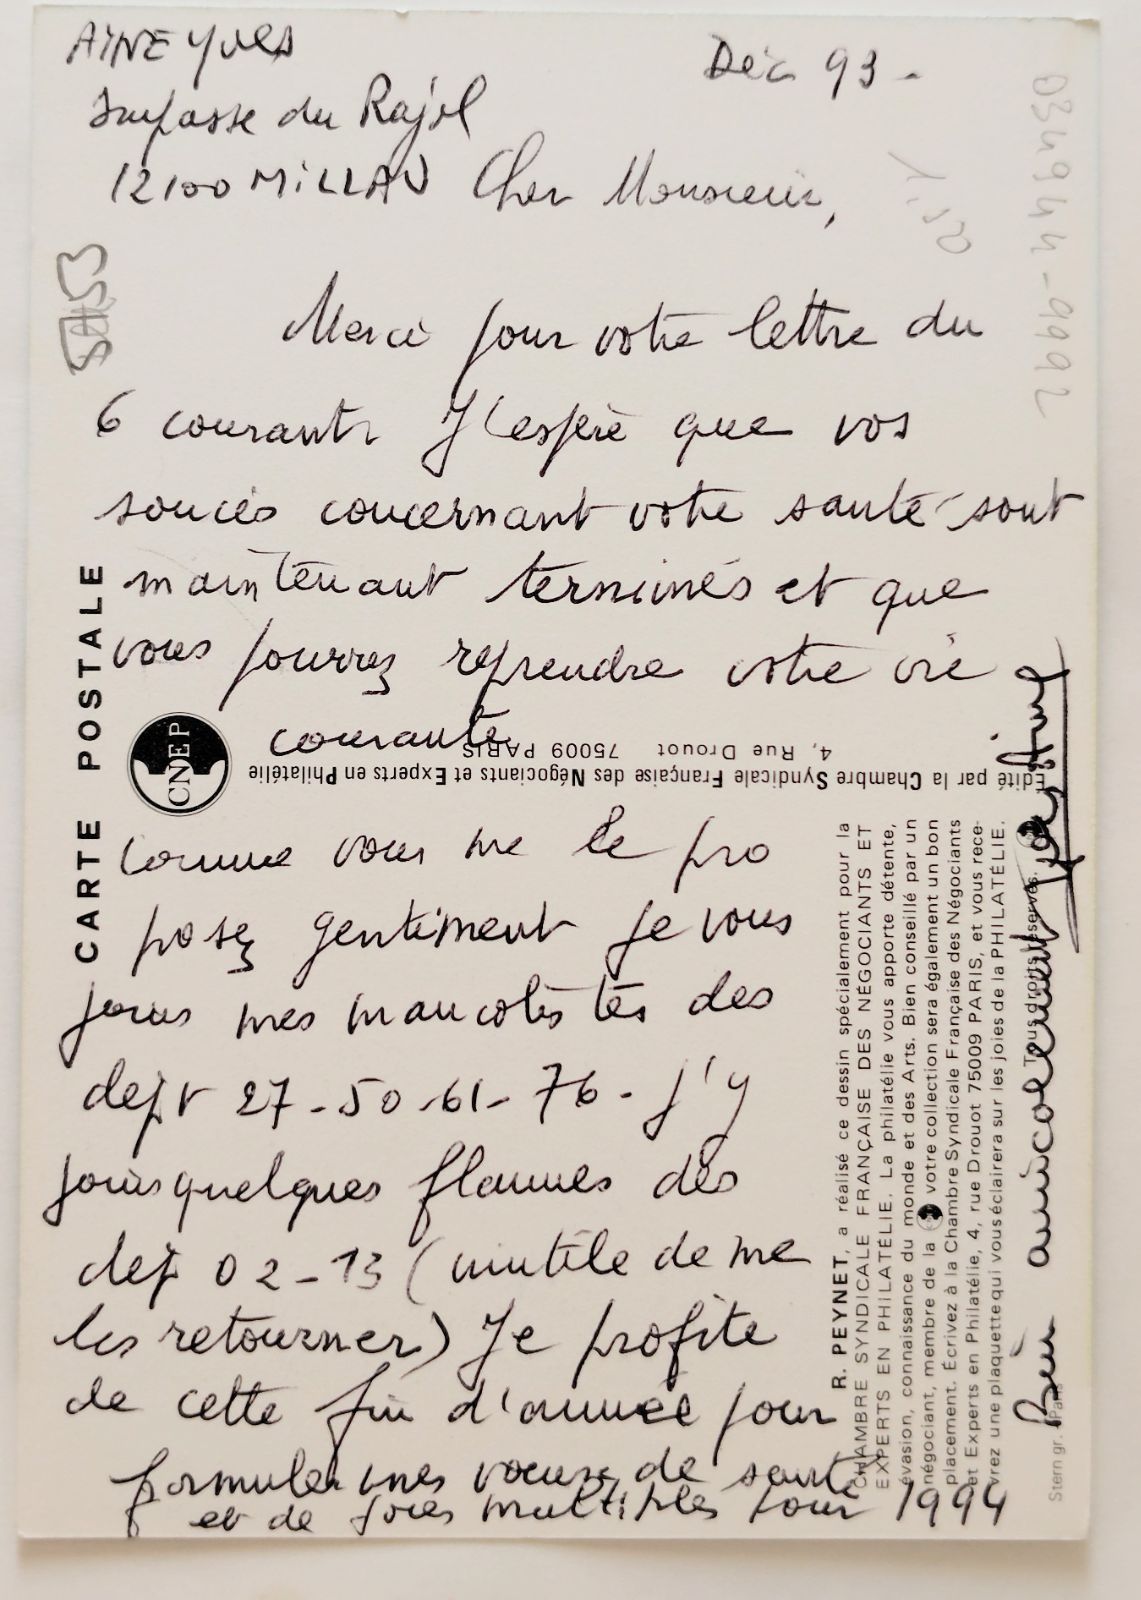 AINE Yves
Impasse du Rajol
12100 MILLAU
Déc 93 -
Cher Monsieur,
Merci pour votre lettre du
6 courant. J'espère que vos
soucis concernant votre santé sont
maintenant terminés et que
vous pourrez reprendre votre vie
courante
Comme vous me le pro
posez gentiment je vous
joins mes mancolistes des
dept 27-50-61-76- j'y
joins quelques flammes des
dep 02-13 (inutile de me
les retourner) Je profite
de cette fin d'année pour
formuler mes voeux de santé
et de joies multiples pour 1994
Bien amicalement Yves Aine
034944-9992
1,50
CARTE POSTALE
CNEP
Édité par la Chambre Syndicale Française des Négociants et Experts en Philatélie
4, Rue Drouot 75009 PARIS
R. PEYNET, a réalisé ce dessin spécialement pour la
CHAMBRE SYNDICALE FRANÇAISE DES NÉGOCIANTS ET
EXPERTS EN PHILATÉLIE. La philatélie vous apporte détente,
évasion, connaissance du monde et des Arts. Bien conseillé par un
négociant, membre de la votre collection sera également un bon
placement. Écrivez à la Chambre Syndicale Française des Négociants
et Experts en Philatélie, 4, rue Drouot 75009 PARIS, et vous rece-
vrez une plaquette qui vous éclairera sur les joies de la PHILATÉLIE.
Tous droits réservés.
Stern gr. Paris